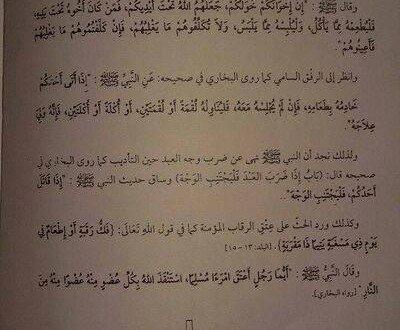 وقال ﷺ : "إِنَّ إِخْوَانَكُمْ خَوَلُكُمْ، جَعَلَهُمُ اللهُ تَحْتَ أَيْدِيكُمْ، فَمَنْ كَانَ أَخُوهُ تَحْتَ يَدِهِ،
فَلْيُطْعِمْهُ مِمَّا يَأْكُلُ، وَلْيُلْبِسْهُ مِمَّا يَلْبَسُ، وَلاَ تُكَلِّفُوهُمْ مَا يَغْلِبُهُمْ، فَإِنْ كَلَّفْتُمُوهُمْ مَا يَغْلِبُهُمْ
فَأَعِينُوهُمْ"
وانظر إلى الرفق السامي كما روى البخاري في صحيحه: عَنِ النَّبِيِّ ﷺ : "إِذَا أَتَى أَحَدَكُمْ
خَادِمُهُ بِطَعَامِهِ، فَإِنْ لَمْ يُجْلِسْهُ مَعَهُ، فَلْيُنَاوِلْهُ لُقْمَةً أَوْ لُقْمَتَيْنِ، أَوْ أُكْلَةً أَوْ أُكْلَتَيْنِ، فَإِنَّهُ وَلِيَ
عِلاَجَهُ".
ولذلك نجد أن النبي ﷺ نهى عن ضرب وجه العبد حين التأديب كما روى البخاري في
صحيحه قال: (بَابُ إِذَا ضَرَبَ العَبْدَ فَلْيَجْتَنِبِ الوَجْهَ) وساق حديث النبي ﷺ : "إِذَا قَاتَلَ
أَحَدُكُمْ، فَلْيَجْتَنِبِ الوَجْهَ"..
وكذلك ورد الحث على عِتْقِ الرقاب المؤمنة كما في قول اللهِ تَعَالَى: {فَكُّ رَقَبَةٍ أَوْ إِطْعَامٌ فِي
يَوْمٍ ذِي مَسْغَبَةٍ يَتِيمًا ذَا مَقْرَبَةٍ}. [البلد: ١٣ - ١٥]
وقَالَ النَّبِيُّ ﷺ : "أَيُّمَا رَجُلٍ أَعْتَقَ امْرَءًا مُسْلِمًا، اسْتَنْقَذَ اللهُ بِكُلِّ عُضْوٍ مِنْهُ عُضْوًا مِنْهُ مِنَ
النَّارِ" [رواه البخاري].